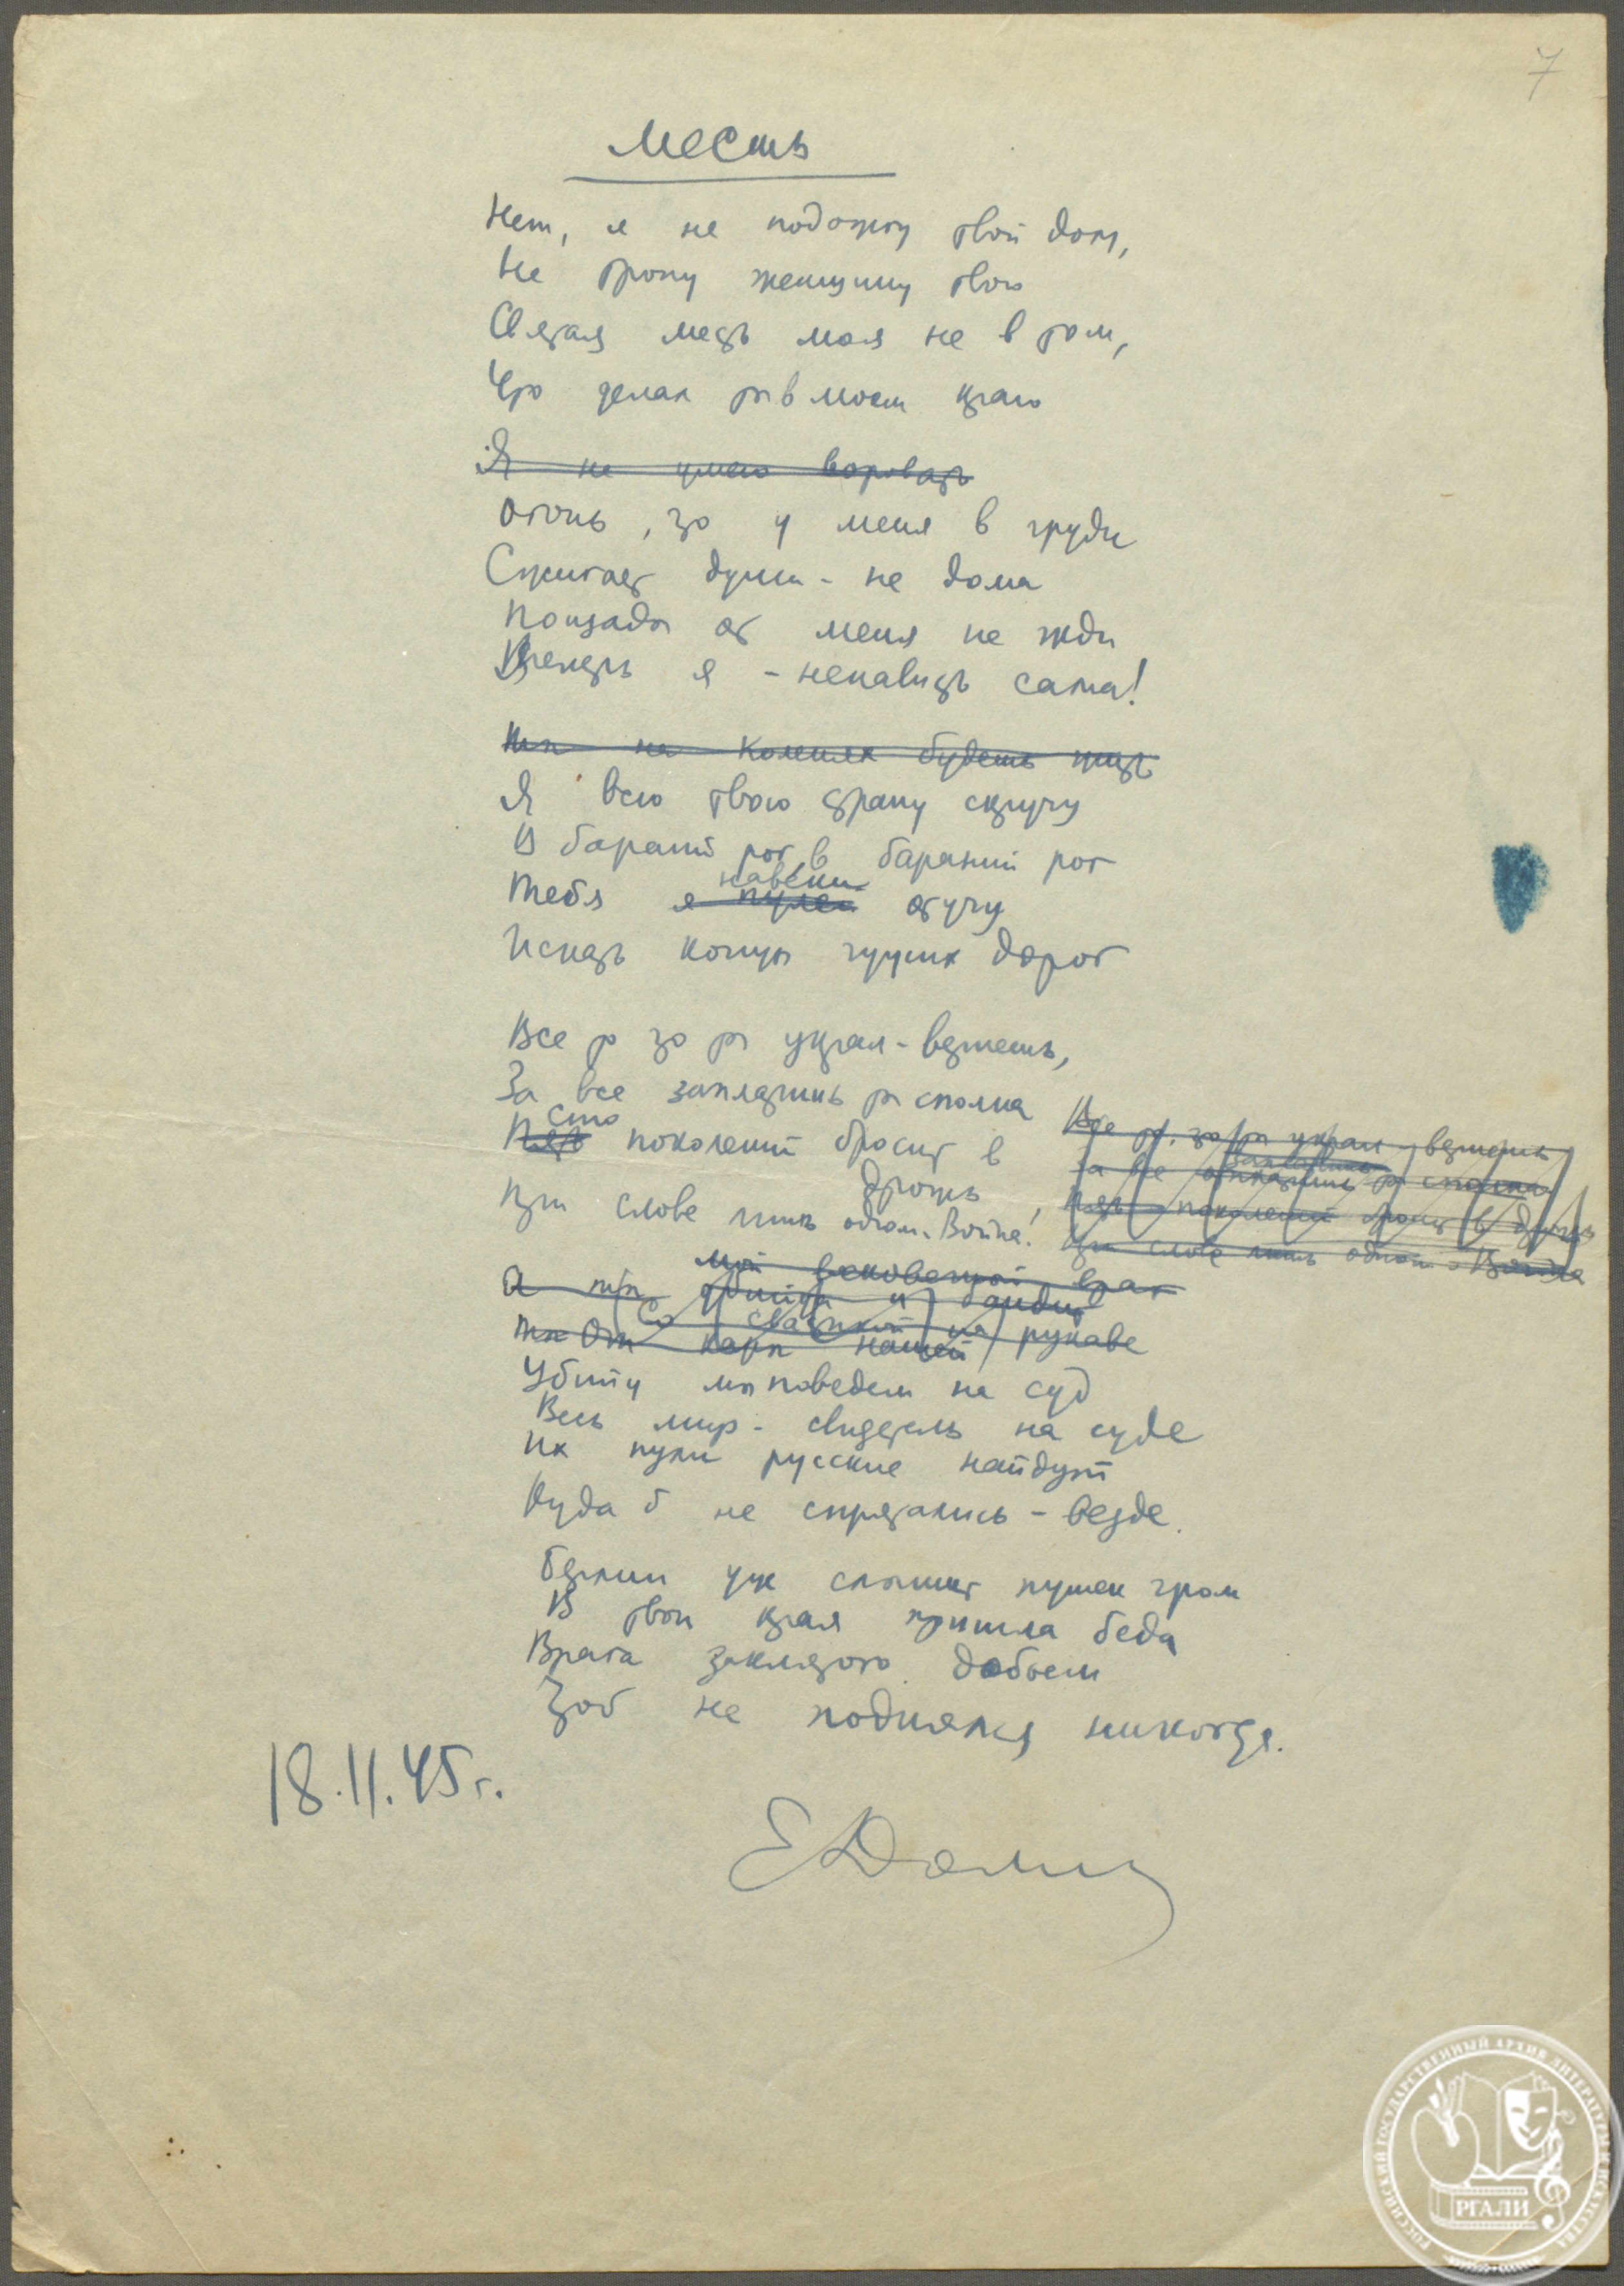 7
Месть
Нет, я не подожгу твой дом,
Не трону женщину твою
Святая месть моя не в том,
Что делал ты в моем краю
Я не умею воровать
Огонь, что у меня в груди
Сжигает души - не дома
Пощады от меня не жди
Теперь я - ненависть сама!
Ты на коленях будешь
Я всю твою страну скручу
В бараний рог, в бараний рог
навеки
Тебя я пулей отучу
Искать концы чужих дорог
Все то что ты украл - вернешь,
За все заплатишь ты сполна
Сто
Пять поколений бросит в
дрожь,
При слове лишь одном - Война!
Все то, что ты украл - вернешь
За все заплатишь ты сполна
Пять поколений бросит в дрожь
При слове лишь одном - Война
мой вековечный враг
А ты убийца и бандит
Со свастикой на рукаве
ты От кары нашей
Убийц мы поведем на суд
Весь мир - свидетель на суде
Их пули русские найдут
Куда б не спрятались - везде.
Берлин уж слышит пушек гром
В твои края пришла беда
Врага заклятого добьем
Чтоб не поднялся никогда.
18.II.45 г.
Е Долм
РОССИЙСКИЙ ГОСУДАРСТВЕННЫЙ АРХИВ ЛИТЕРАТУРЫ И ИСКУССТВА
РГАЛИ